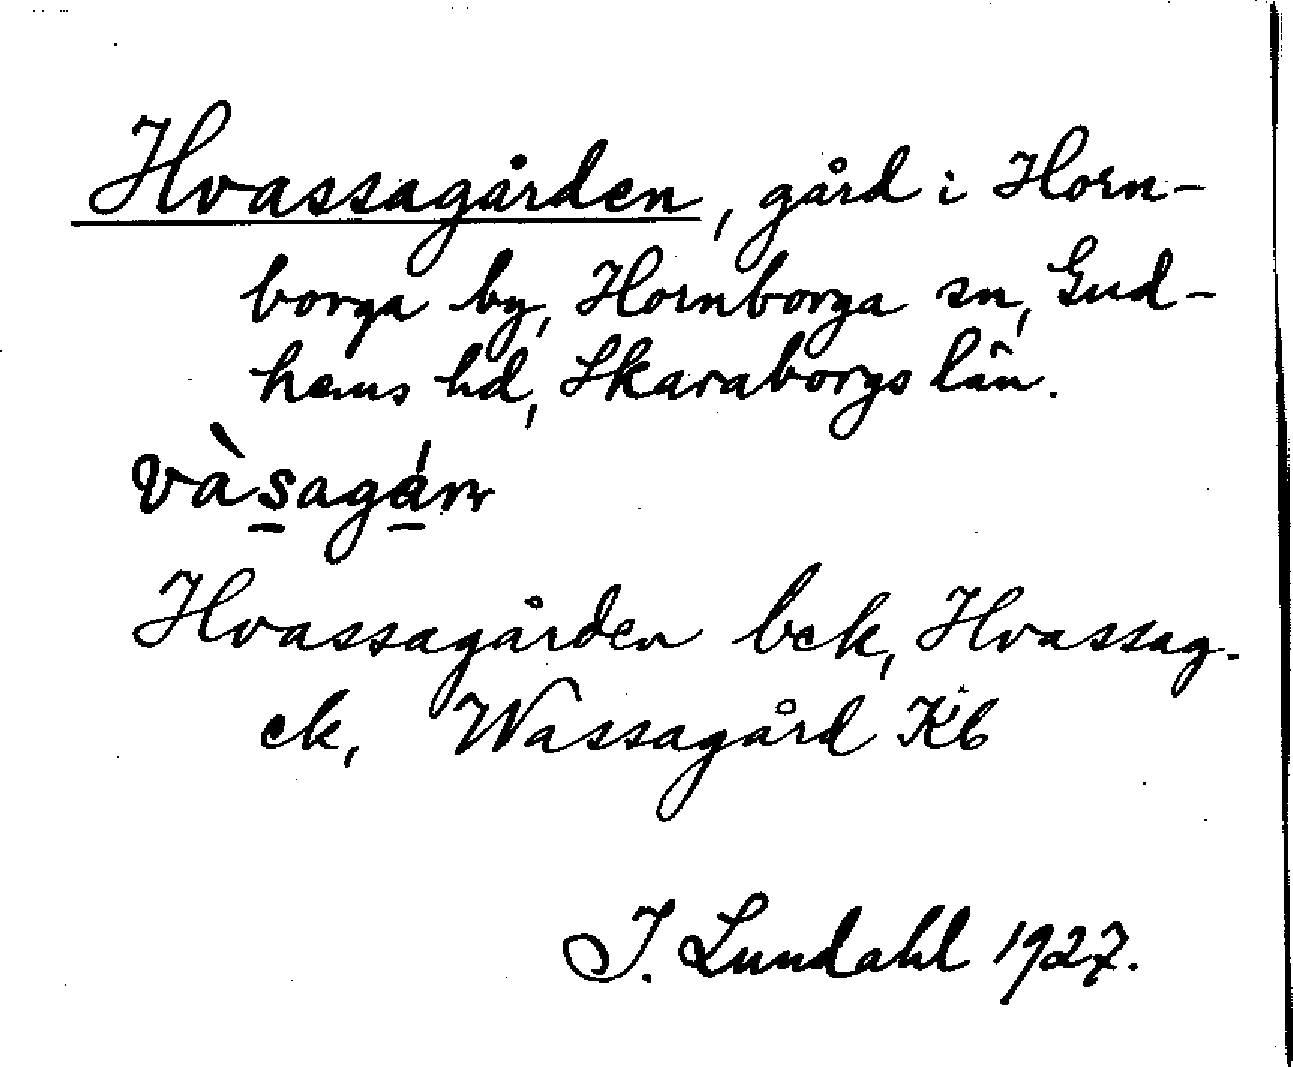 Hvassagården, gård i Horn-
borga by, Hornborga sn, Gud-
hems hd, Skaraborgs län.
vàsagár
Hvassagården bek, Hvassag.
ek, Wassagård Kb
I. Lundahl 1927.